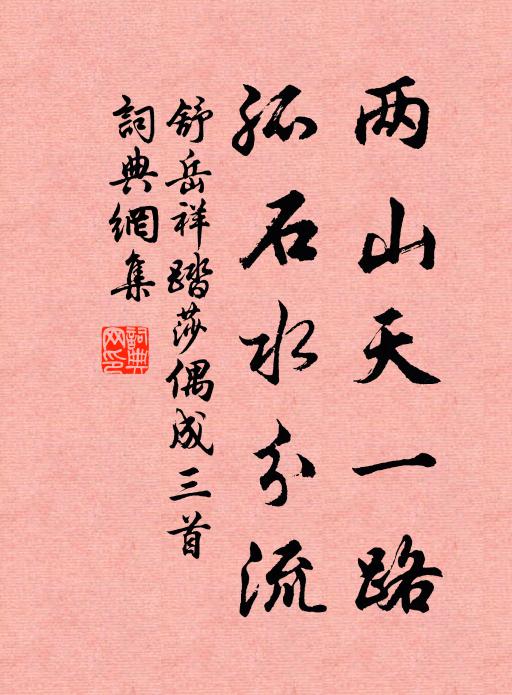 两山天一路
孤石水分流
舒岳祥踏莎偶成三首
詞典網集
詞典网印